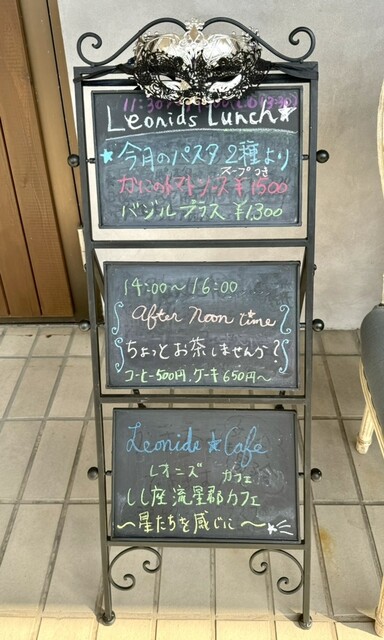 11:30
Leonids Lunch★
★今月のパスタ2種より
スープつき
かにのトマトソース ¥1500
バジルプラス ¥1,300
14:00～16:00
After Noon time
ちょっとお茶しませんか?
コーヒー500円.ケーキ650円～
Leonids★Café
レオニズ カフェ
しし座流星群カフェ
～星たちを感じに～